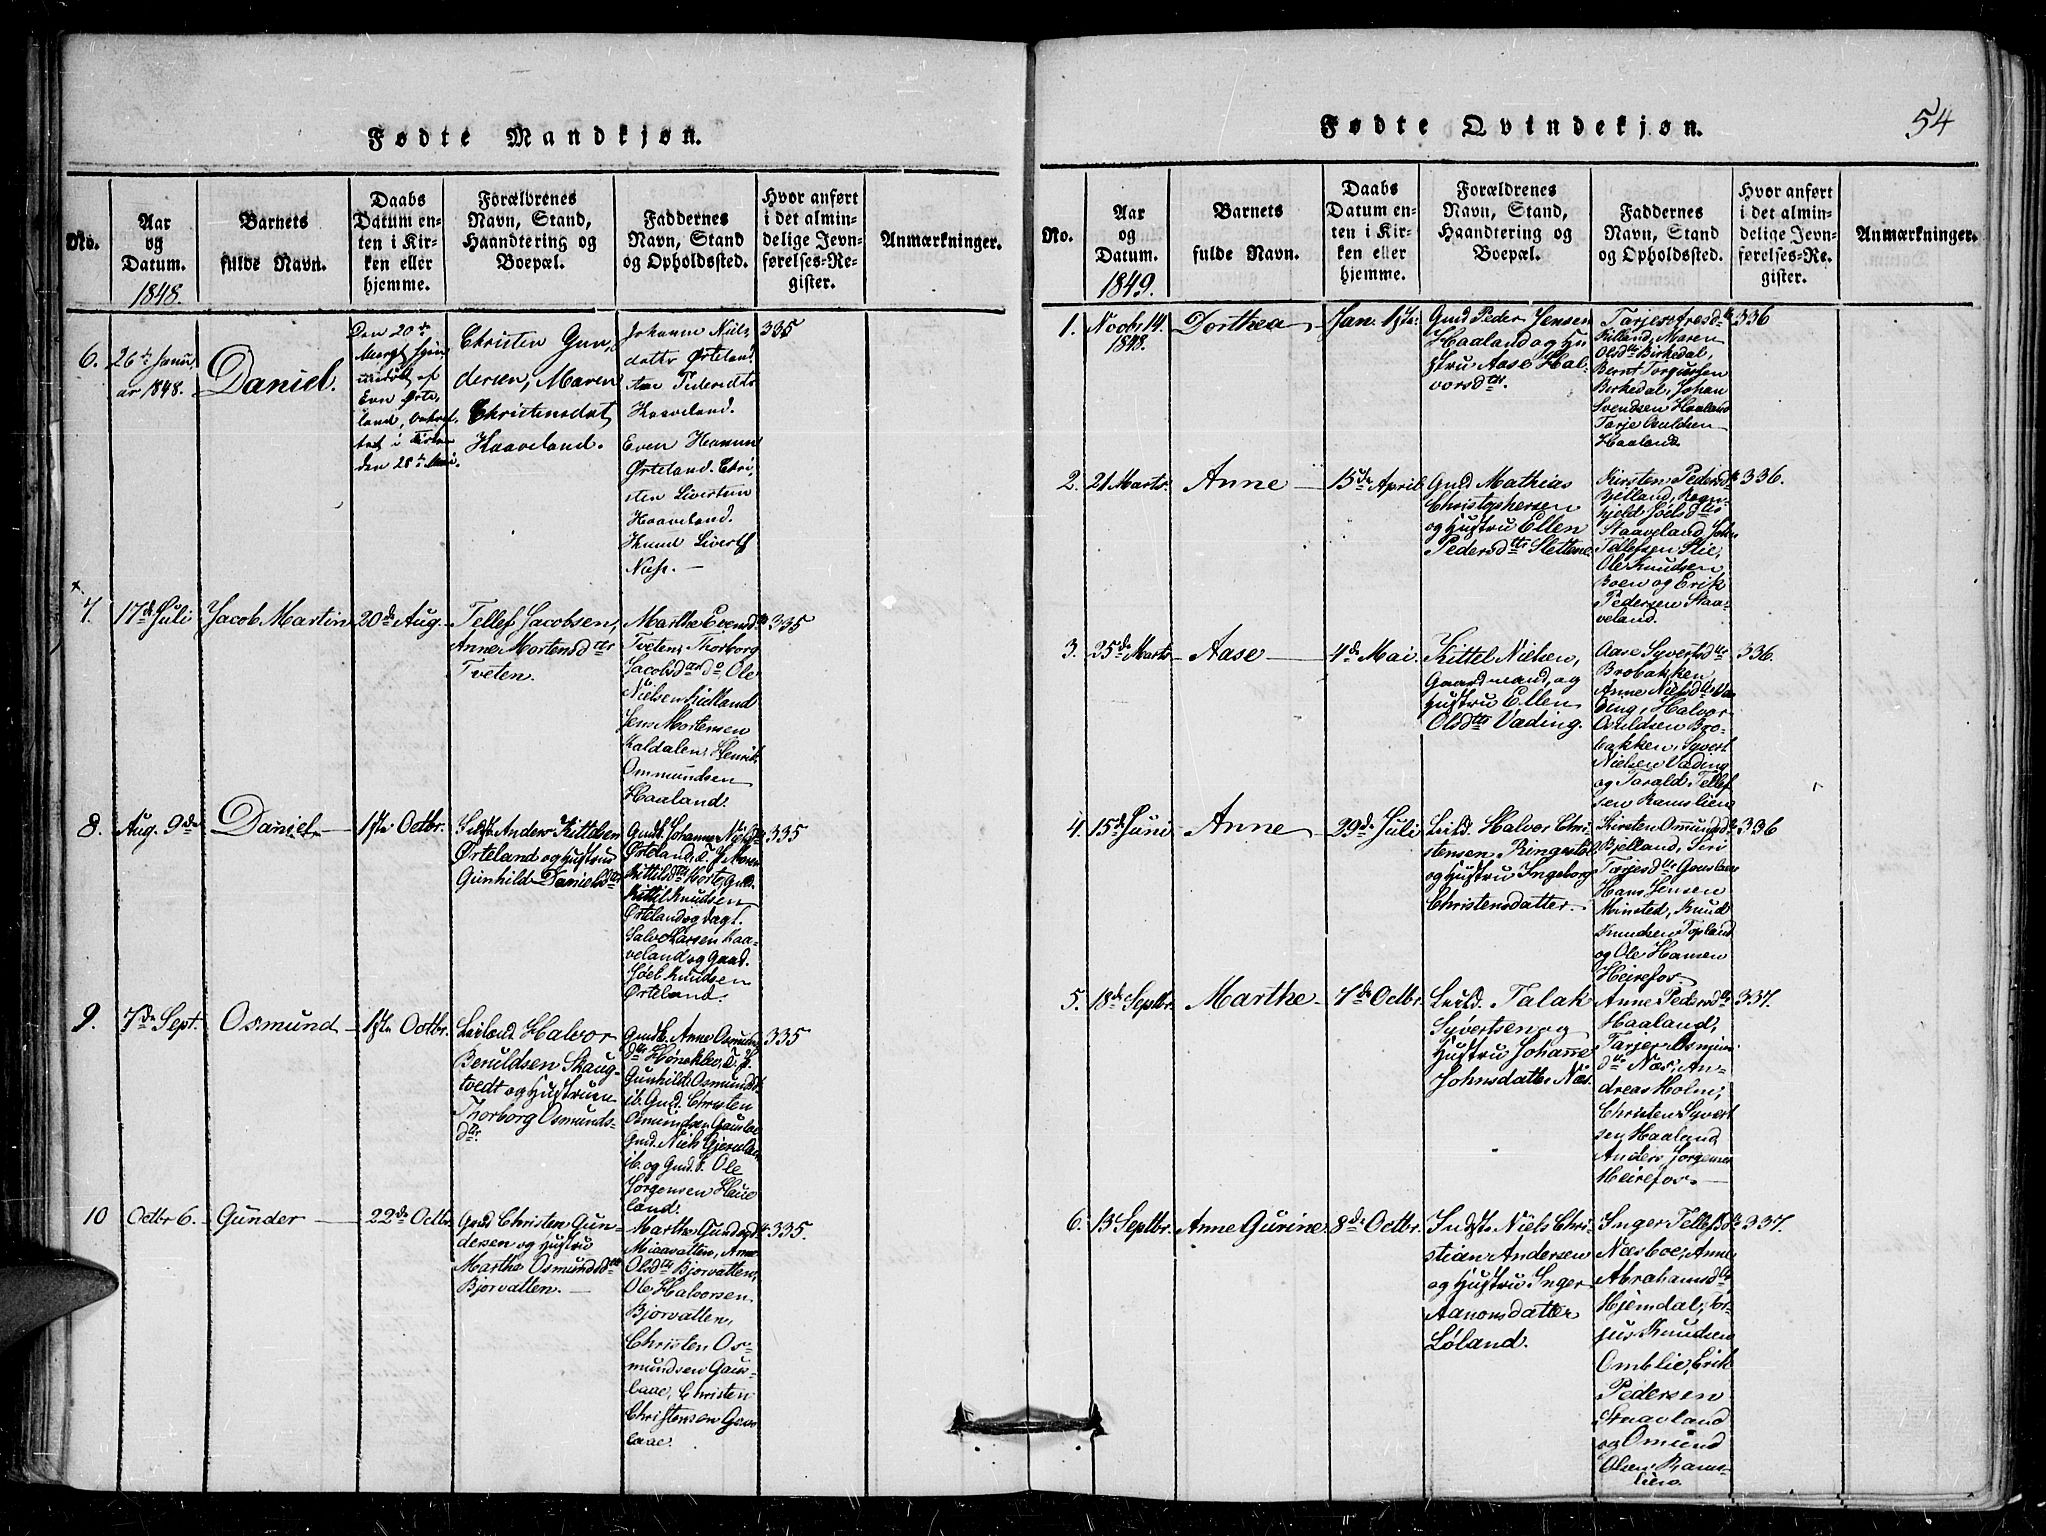 54
Fødte Mandkjøn.
No.
Aar
og
Datum.
1848.
Barnets
fulde Navn.
Daabs
Datum en-
ten i Kir-
ken eller
hjemme.
Forældrenes
Navn, Stand,
Haandtering og
Boepæl.
Faddernes
Navn, Stand
og Opholdssted.
Hvor anført
i det almin-
delige Jevn-
førelses-Re-
gister.
Anmærkninger.
6.
26de Janu
ar 1848.
Daniel.
Den 20de
Marts hjem
medøbt af
Even Ørte
land,
i Kirken
den 28de Mai.
Christen Gun
dersen, Maren
Christensdat
Haaveland.
Johanne Niels
datter Ørteland
Aae Pedersdtr
Haaveland.
Even
Ørteland. Chri
sten Sivertsen
Haaveland.
Knud Sivertsen
Næss. —
335
7.
17de Juli
Jacob Martin
20de Aug.
Tellef Jacobsen,
Anne Mortensdtr
Tveten.
Marthe Evensdtr
Tveten, Thorborg
Jacobsdtr do Ole
Nielsen Kidland
Jens Mortensen
Kaldalen, Henrik
Ommundsen
Haaland.
335
8.
Aug. 9de
Daniel
1ste Octbr.
Anders Kittelsen
Ørteland og Hustru
Gunhild Danielsdtr
Gmdk. Johanne
Ørteland,
Kittilsdtr Gmd.
Kittil Knudsen
Ørteland og
Salve Larsen Haa-
veland og Gmd.
Joel Knudsen
Ørteland.
335
9.
7de Sept.
Osmund
1ste Octbr.
Leiland Halvor
Beruldsen Skaug-
tvedt og Hustruen
Thorborg Osmunds-
dtr.
Gmdk. Anne Osmunds
dtr
Gunhild Osmundsdtr
ib. Gmd. Christen
Osmundsen Gauslae
Gmd. Niels
ib. og Gmd. S. Ole
Jørgensen
land.
335
10
Octbr 6.
Gunder
22de Octbr
Gmd Christen Gun-
dersen og Hustru
Marthe Osmundsdtr
Bjorvatten. —
Marthe Gundersdtr
Miaavatten, Anne
Olsdtr Bjorvatten,
Ole Halvorsen
Bjorvatten,
Christen Os-
mundsen Gaus-
laae, Christen
Christensen Gaus
laae.
335.
Fødte Qvindekjøn.
No.
Aar
og
Datum.
1849.
Barnets
fulde Navn.
Daabs
Datum en-
ten i Kir-
ken eller
hjemme.
Forældrenes
Navn, Stand,
Haandtering og
Boepæl.
Faddernes
Navn, Stand
og Opholdssted.
Hvor anført
i det almin-
delige Jevn-
førelses-Re-
gister.
Anmærkninger.
1.
Novbr 14.
1848.
Dorthea
Jan. 1ste
Gmd Peder Jensen
Haaland og Hu
stru Aase Hal-
vorsdtr.
Killand, Maren
Olsdtr Birkedal,
Bernt Torgussen
Birkedal, Johan
Svendsen Haaland
Tarje Auldsen
Haaland.
336
2.
21 Marts.
Anne
15de April
Gmd Mathias
Christophersen
og Hustru Ellen
Pedersdtr Slettene
Kirsten Pedersdtr
Bjelland, Ragn-
hjeld Joelsdtr
Staaveland, John
Tellefsen Slie,
Ole Knudsen
Boen og Erik
Pedersen Staa-
veland.
336.
3.
25de Marts
Aase
4de Mai
Kittel Nielsen,
Gaardmand, og
Hustru Ellen
Olsdtr Væding.
Aase Syvertsdtr
Brobakken,
Anne Nielsdtr Væ
ding, Halvor
Auldsen Bro-
bakken, Syvert
Nielsen Væding
og Tarald Tellef
sen Ramslien
336.
4.
15de Juni
Anne
29de Juli
Leild. Halvor Chri-
stensen
og Hustru Ingeborg
Christensdatter.
Kirsten Omundsdtr
Bjelland, Siri
Tarjesdtr Gauslaae
Hans Jensen
Minsted, Knud
Knudsen Topland
og Ole Hansen
Heirefos
336
5.
18de Septbr
Marthe
7de Octbr
Leild. Talak
Syvertsen og
Hustru Johanne
Johnsdatter Næs.
Anne Pedersdtr
Haaland,
Tarjer Osmun
dtr Næs, An-
dreas Holm,
Christen Syvert
sen Haaland
Anders Jørgensen
Heirefos. —
337.
6.
13 Septbr.
Anne Gurine
8de Octbr.
Indst Niels Chri-
stian Andersen
og Hustru Inger
Aanonsdatter
Løland.
Inger Tellefsdtr
Næsboe, Anne
Abrahamsdtr
Hjemdal, Tor-
jus Knudsen
Omblie, Erik
Pedersen
Staavland
og Omund
Olsen Rams-
lien.
337.